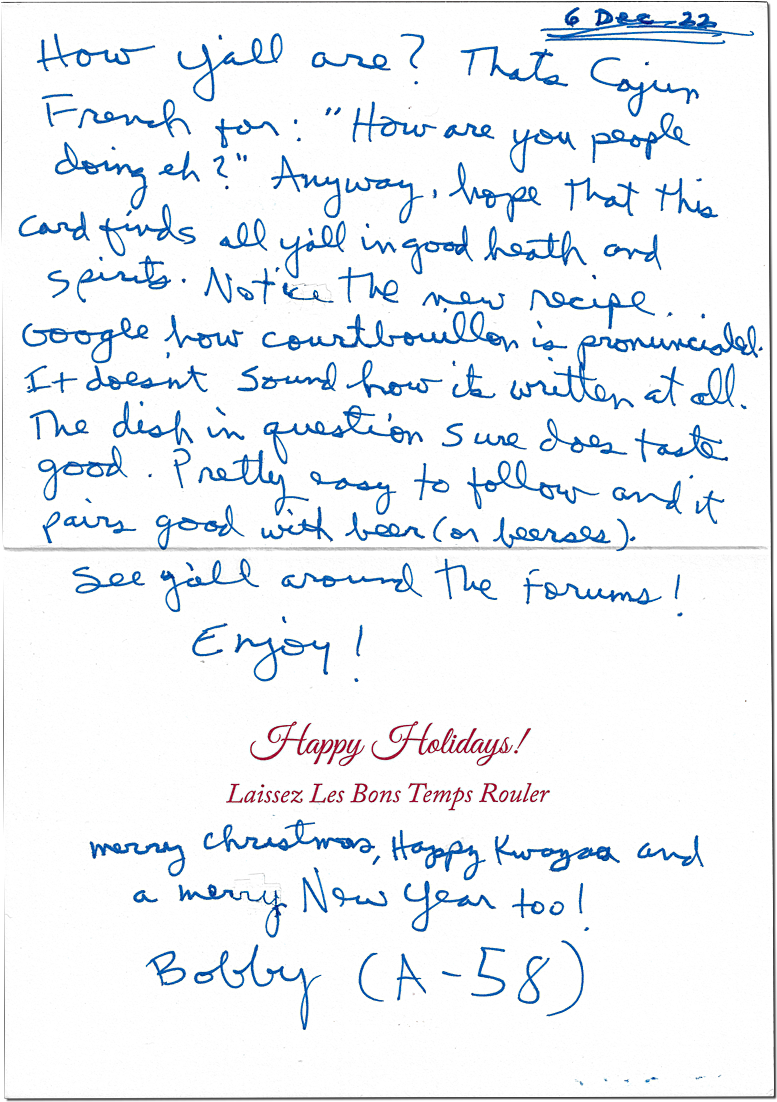 6 Dec 22
How y'all are? Thats Cajun
French for: "How are you people
doing eh?" Anyway, hope that this
card finds all y'all in good heath and
spirits. Notice the new recipe.
Google how courtbouillon is pronuncided.
It doesn't sound how its written at all.
The dish in question sure does taste
good. Pretty easy to follow and it
pairs good with beer (or beerses).
See y'all around the Forums!
Enjoy!
Happy Holidays!
Laissez Les Bons Temps Rouler
merry christmas, Happy Kwazaa and
a merry New Year too!
Bobby (A-58)